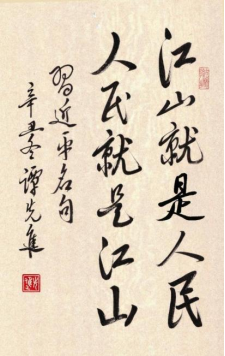 江山就是人民
人民就是江山
習近平名句
辛丑冬譚先進